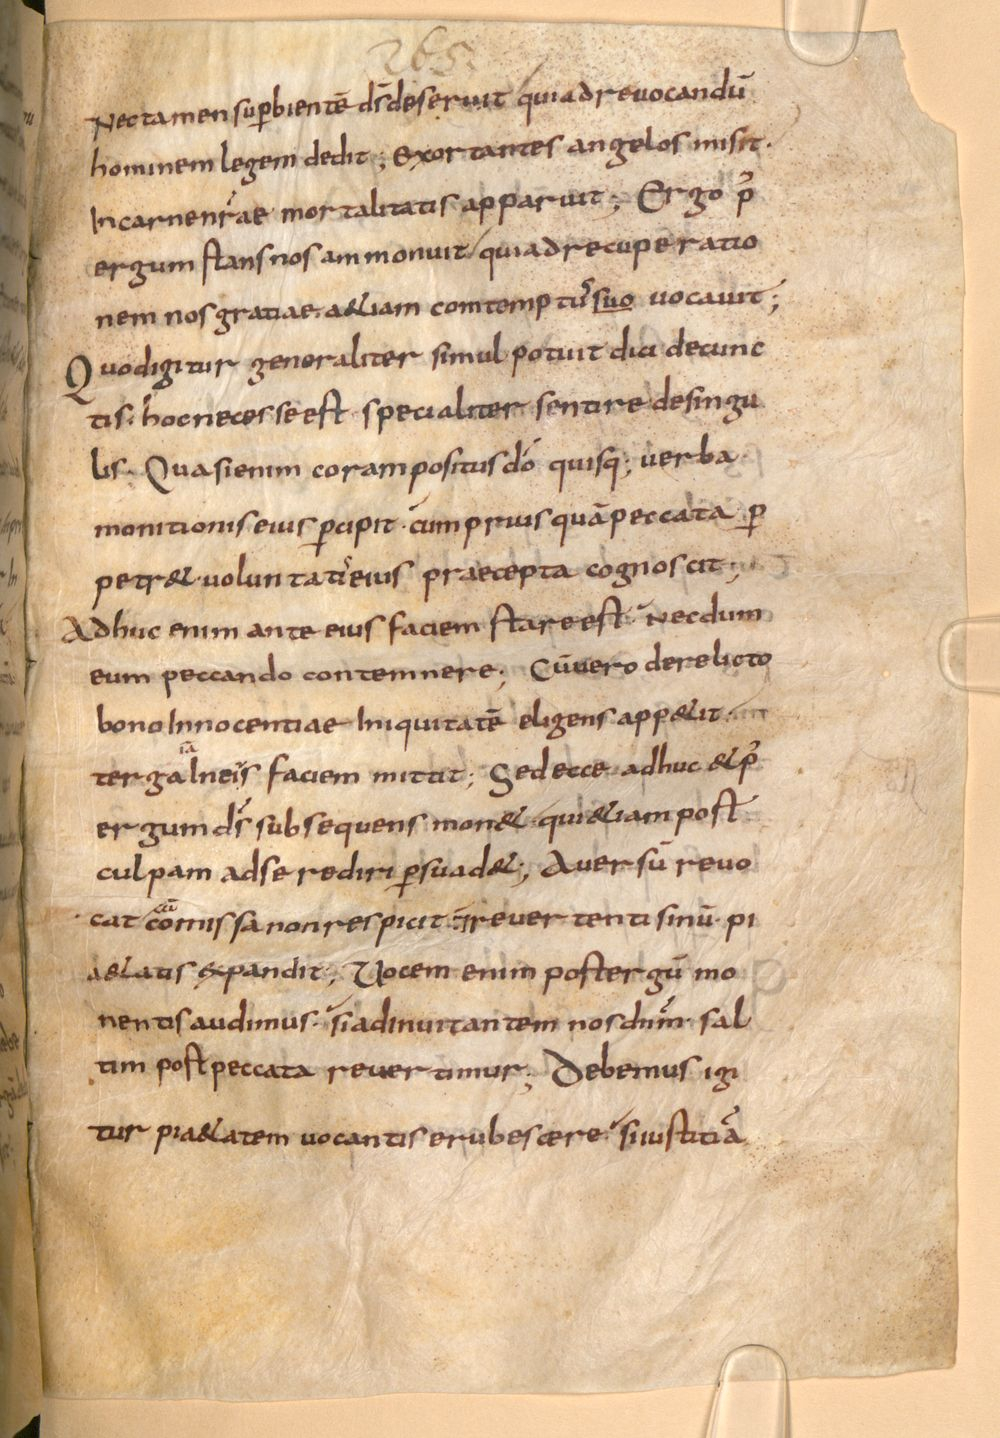 265.
Nectamen sup̄bientē d̄s deseruit quia ad revocandū
hominem legem dedit; exortantes angelos misit.
In carne nr̄ae mortalitatis apparuit; Ergo p̄
ergum stans nos ammonuit quia ad recuperatio
nem nos gratiae. a&iam comtemptus̄ suo vocavit;
Quod igitur generaliter simul potuit dici decunc
tis. hoc necesse est specialiter sentire desingu
lis. Quasi enim coram positus dō quisq; verba
monitionis eius p̄cipit. cum prius quā peccata p̄
petr&. voluntatis eius praecepta cognoscit;
Adhuc enim ante eius faciem stare est. Necdum
eum peccando contemnere; Cū vero derelicto
bono Innocentiae Iniquitatē eligens app&it.
terga Ineis faciem mittit; Sed ecce adhuc & p̄
ergum d̄s subsequens mon&. qui &iam post
culpam adse rediri p̄suad&; Aversū revo
cat cōmissa non respicit. revertenti sinū pi
a&atis expandit; Vocem enim post ergū mo
nentis audimus. si ad invitantem nos dn̄m. sal
tim post peccata revertimur; Debemus igi
tur pia&atem vocantis erubescere. si iustitiā